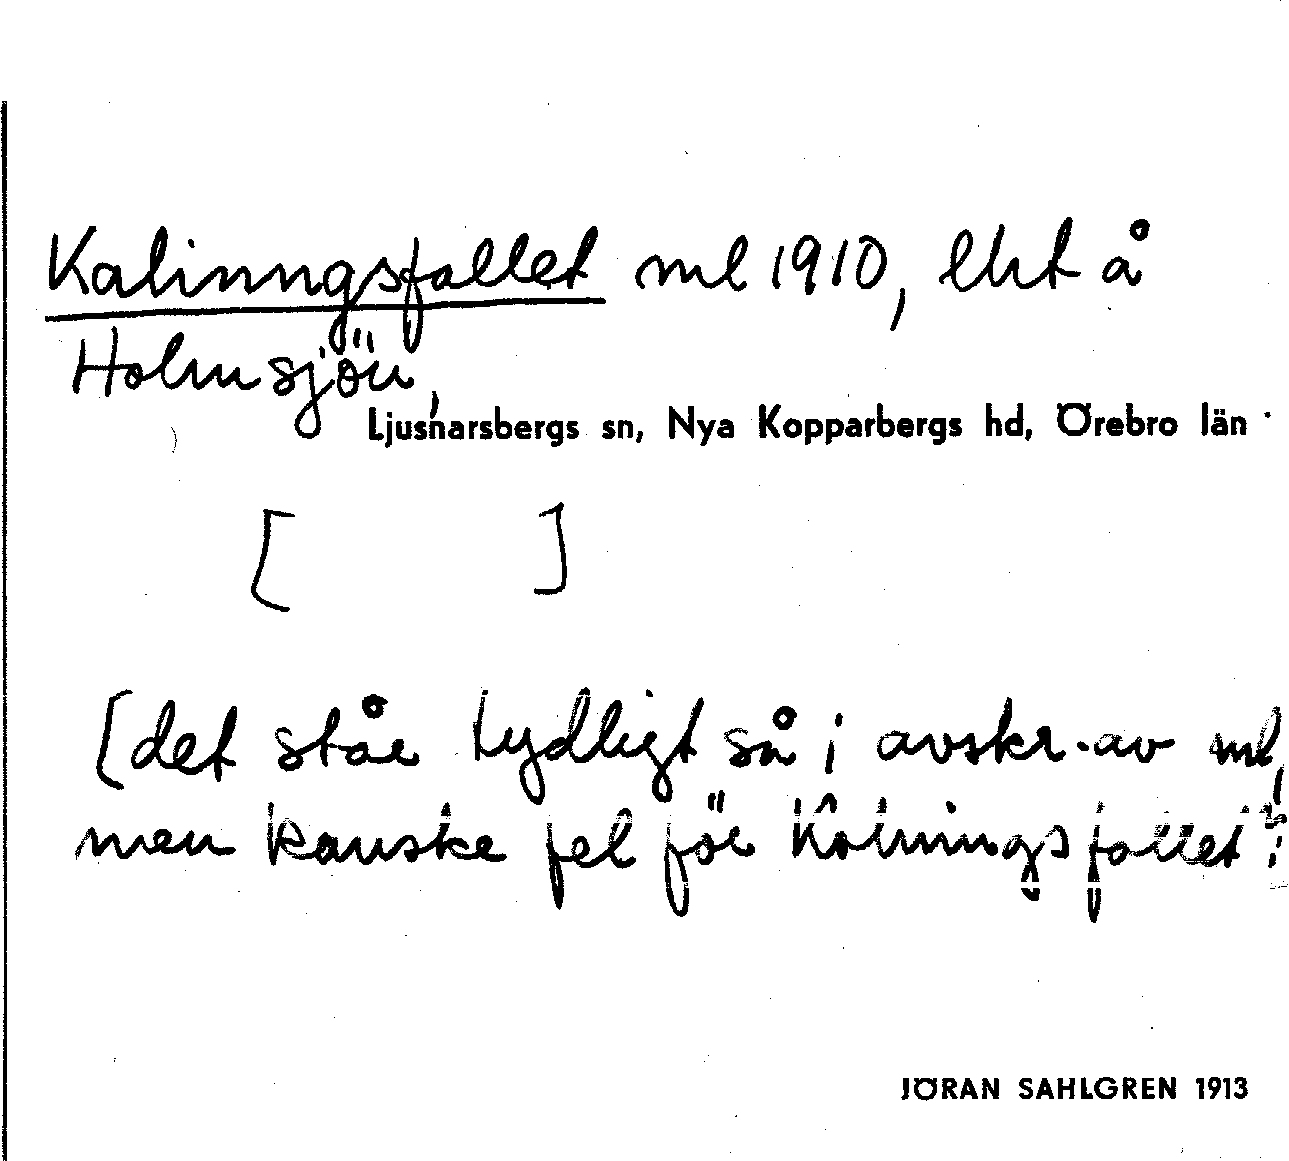 Kalinngsfallet ml 1910, lht å
Holmsjön,
Ljusnarsbergs sn, Nya Kopparbergs hd, Örebro län
[ ]
[det står tydligt så i avskr. av ml,
men kanske fel för Kolningsfallet?]
JÖRAN SAHLGREN 1913